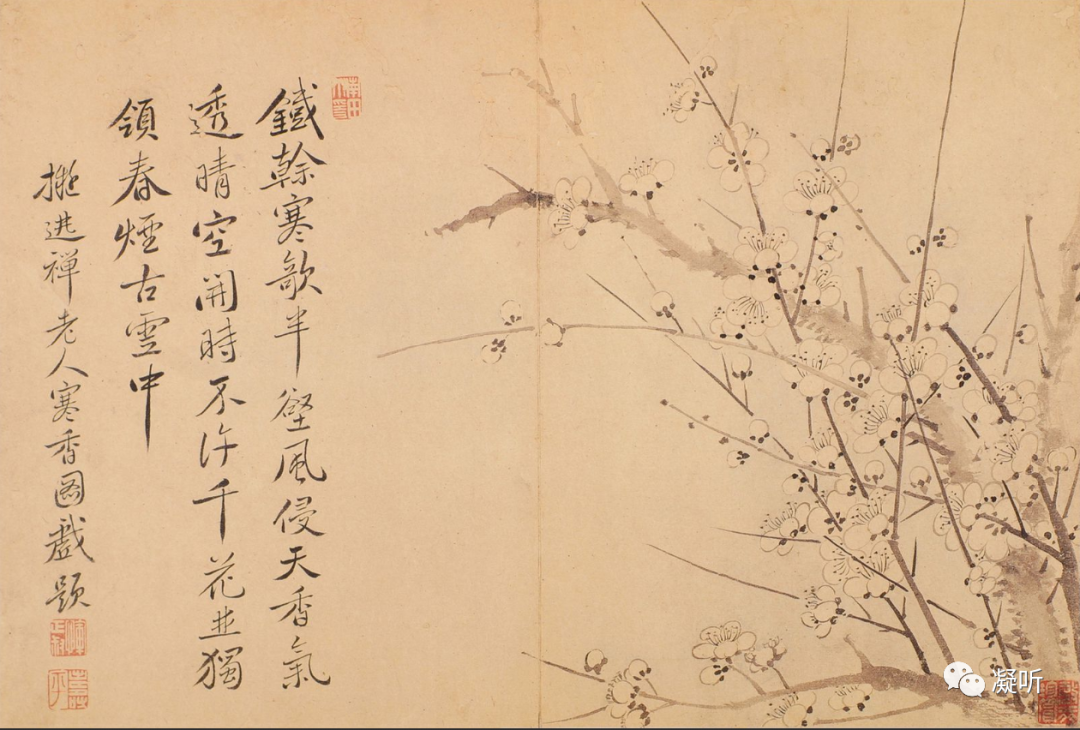 鐵榦寒欹半壑風侵天香氣
透晴空開時不許千花並獨
領春煙古雪中
擬逃禪老人寒香圖戲題
壽平
凝听